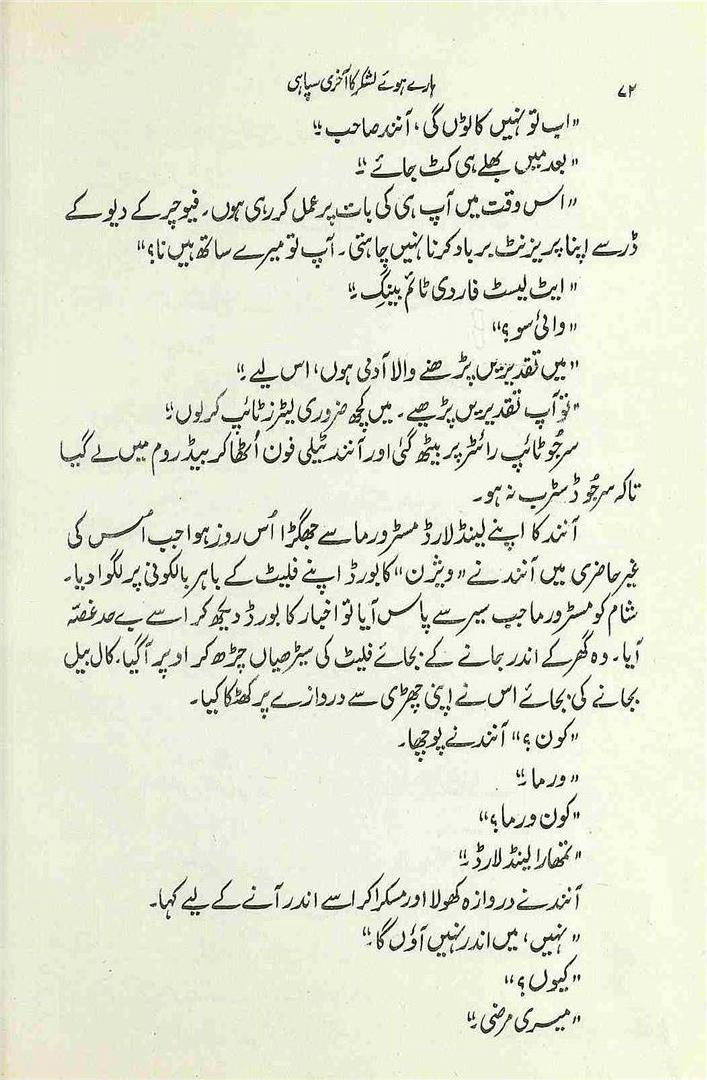 ۷۲ ہارے ہوئے لشکر کا آخری سپاہی
"اب تو نہیں کالوں گی، آنند صاحب۔"
"بعد میں بھلے ہی کٹ جائے۔"
"اس وقت میں آپ ہی کی بات پر عمل کر رہی ہوں۔ فیوچر کے دیو کے
ڈر سے اپنا پریزنٹ برباد کرنا نہیں چاہتی۔ آپ تو میرے ساتھ ہیں نا؟"
"ایٹ لیسٹ فار دی ٹائم بینگ۔"
"وائی سو؟"
"میں تقدیریں پڑھنے والا آدمی ہوں، اس لیے۔"
"تو آپ تقدیریں پڑھیے۔ میں کچھ ضروری لیٹرز ٹائپ کر لوں۔"
سرجُو ٹائپ رائٹر پر بیٹھ گئی اور آنند ٹیلی فون اُٹھا کر بیڈ روم میں لے گیا
تاکہ سرجُو ڈسٹرب نہ ہو۔
آنند کا اپنے لینڈ لارڈ مسٹر ورما سے جھگڑا اُس روز ہوا جب اُس کی
غیر حاضری میں آنند نے "ویژن" کا بورڈ اپنے فلیٹ کے باہر بالکونی پر لگوا دیا۔
شام کو مسٹر ورما جب سیر سے پاس آیا تو اخبار کا بورڈ دیکھ کر اسے بے حد غصّہ
آیا۔ وہ گھر کے اندر جانے کے بجائے فلیٹ کی سیڑھیاں چڑھ کر اوپر آ گیا۔ کال بیل
بجانے کی بجائے اس نے اپنی چھڑی سے دروازے پر کھڑکا کیا۔
"کون؟" آنند نے پوچھا۔
"ورما۔"
"کون ورما؟"
"تمھارا لینڈ لارڈ۔"
آنند نے دروازہ کھولا اور مسکرا کر اسے اندر آنے کے لیے کہا۔
"نہیں، میں اندر نہیں آؤں گا۔"
"کیوں؟"
"میری مرضی۔"